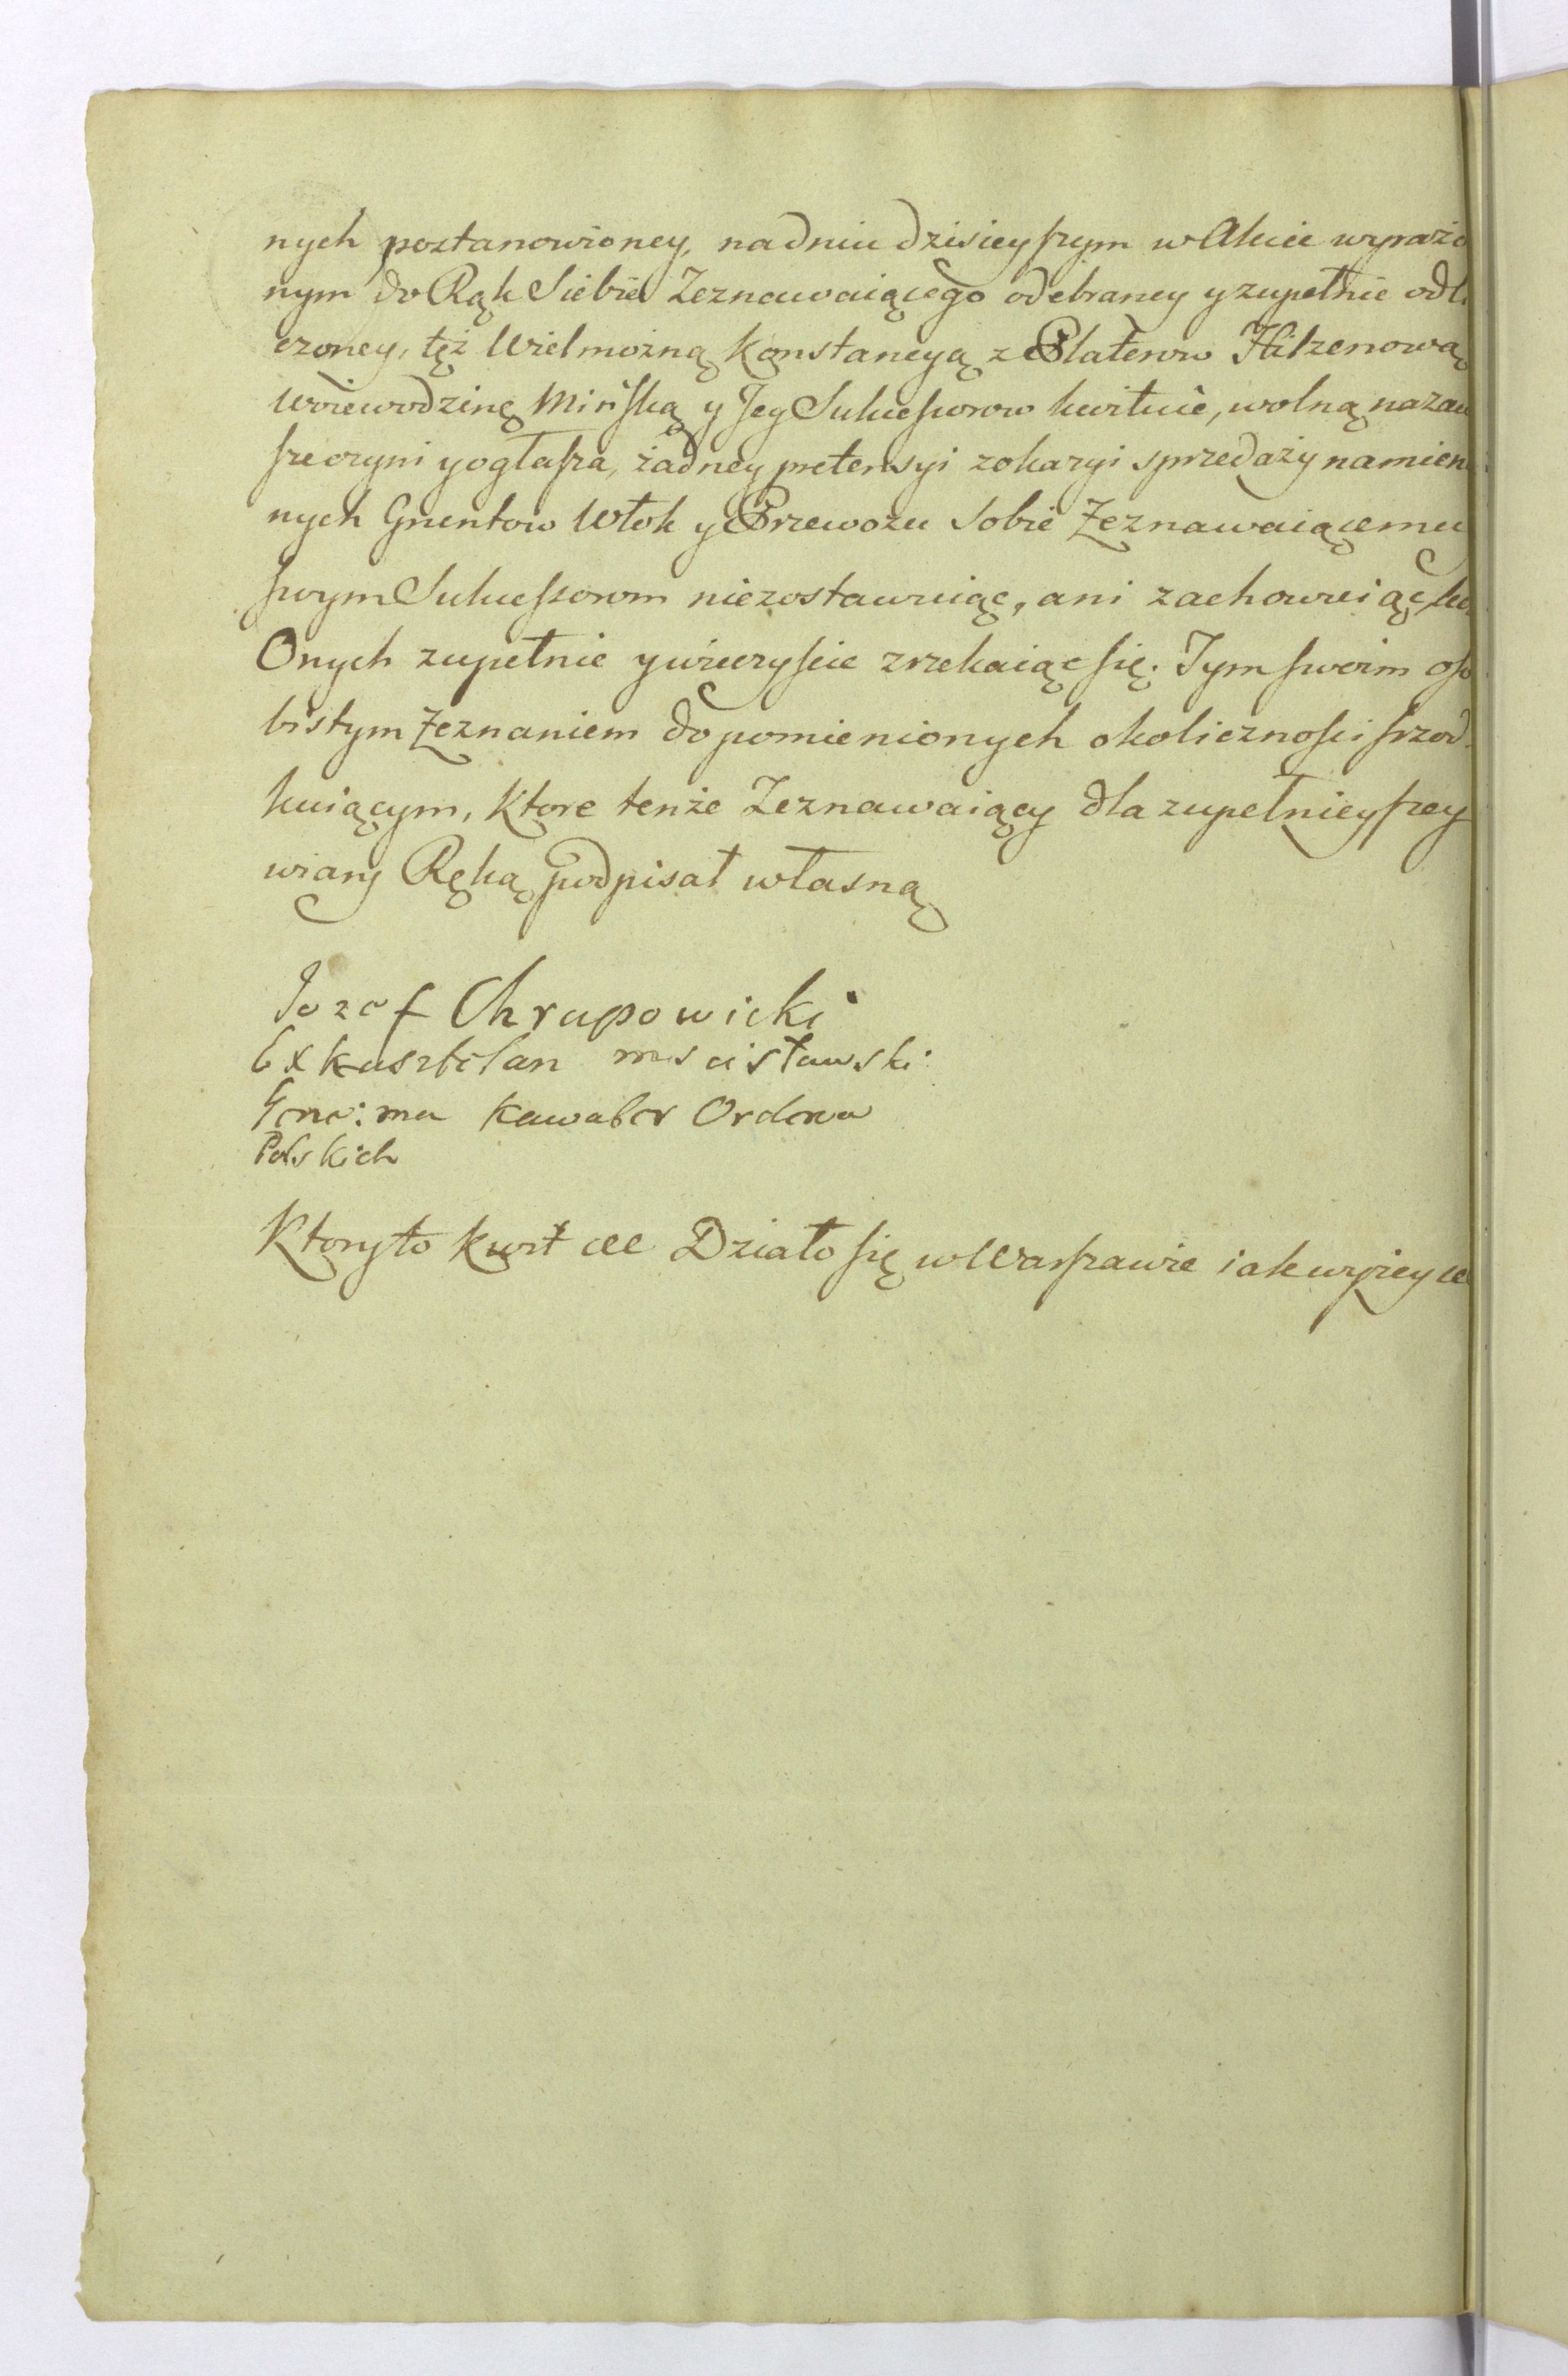 nych postanowioney, nadniu dzisieyszym w Akcie wyrażo
nym do Rąk Siebie Zeznawaiącego odebraney y zupełnie odli
czoney, tęż Wielmożną Konstancyą z Platerow Hilzenową
Woiewodzinę Mińską y Jey Sukcessorow kwituie, wolną nazaw
sze czyni y ogłasza, żadney pretensyi z okazyi sprzedaży namien
nych Gruntow Włok y Przewozu Sobie Zeznawaiącemu
swym Sukcessorom niezostawuiąc, ani zachowuiąc
Onych zupełnie y wieczyscie zrzekaiąc się. Tym swoim oso
bistym Zeznaniem do pomienionych okolicznosci srzod
kuiącym, Ktore tenże Zeznawaiący dla zupełnieyszey
wiary Ręką podpisał własną
Jozef Chrapowicki
Exkasztelan mscisławski
kawaler Orderow
Polskich
Ktory to kwit &c Działo się w Warszawie iak wyżey